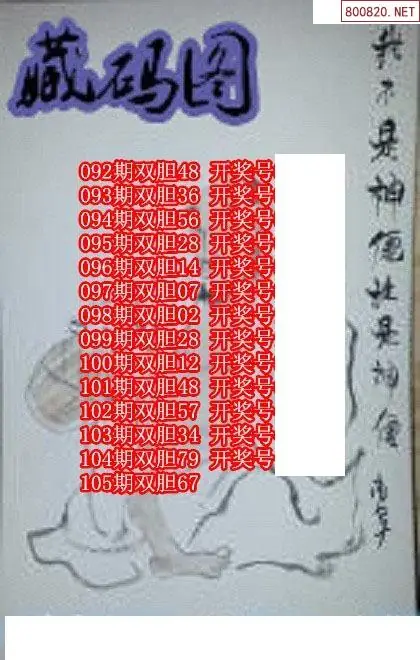 800820.NET
藏码图
092期双胆48 开奖号
093期双胆36 开奖号
094期双胆56 开奖号
095期双胆28 开奖号
096期双胆14 开奖号
097期双胆07 开奖号
098期双胆02 开奖号
099期双胆28 开奖号
100期双胆12 开奖号
101期双胆48 开奖号
102期双胆57 开奖号
103期双胆34 开奖号
104期双胆79 开奖号
105期双胆67
不是神便是神